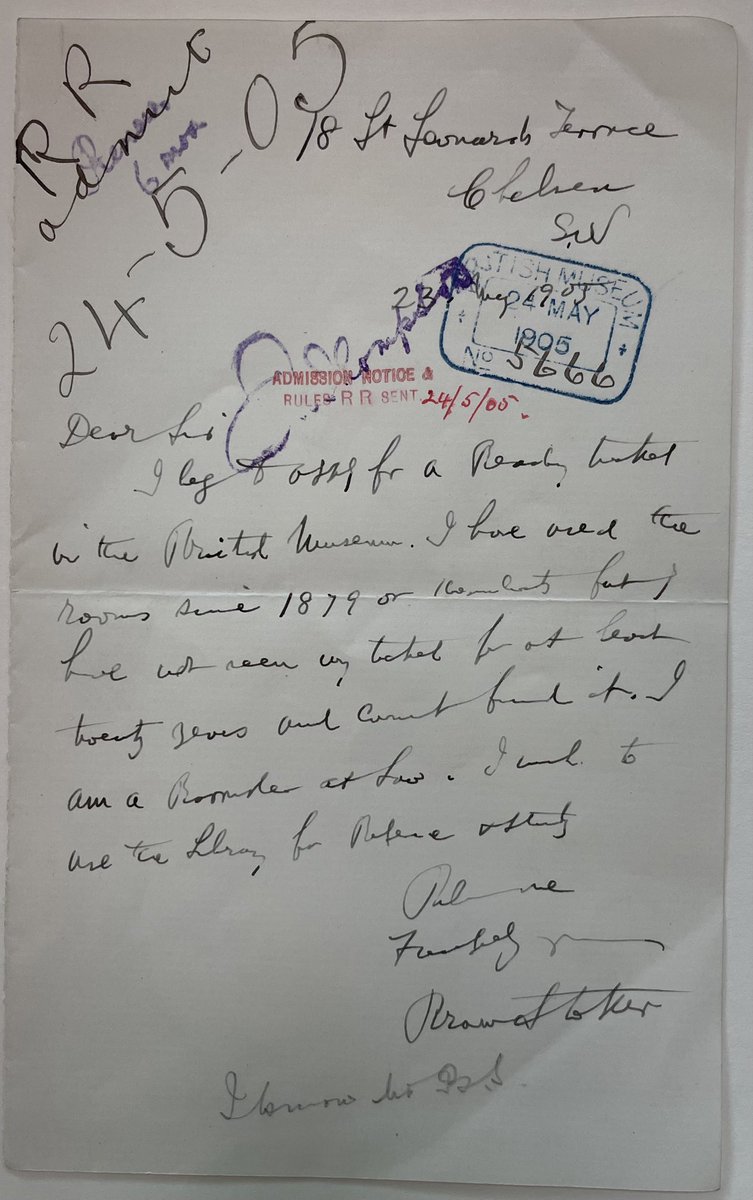 R R
admit
6 mos
24-5-05
18 St Leonards Terrace
Chelsea
S.W
23 May 1905
BRITISH MUSEUM
24 MAY
1905
No 5666
ADMISSION NOTICE &
RULES R R SENT. 24/5/05.
Dear Sir
I beg to apply for a Reading ticket
in the British Museum. I have used the
rooms since 1879 or but I
have not seen my ticket for at least
twenty years and cannot find it. I
am a Barrister at Law. I wish to
use the Library for Reference & study
Believe me
Faithfully yours
Bram Stoker
I know